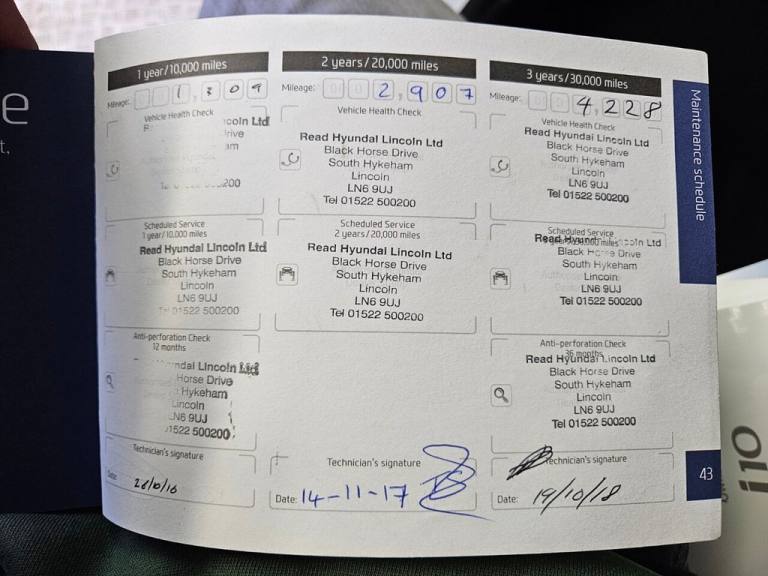 e
t.
1 year/10,000 miles
Mileage: 1,309
Vehicle Health Check
coln Ltd
rive
am
200
Scheduled Service
1 year/10,000 miles
Read Hyundai Lincoln Ltd
Black Horse Drive
South Hykeham
Lincoln
LN6 9UJ
Tel 01522 500200
Anti-perforation Check
12 months
ndai Lincoln Ltd
Horse Drive
Hykeham
Lincoln
LN6 9UJ
01522 500200
Technician's signature
Date:
2 years/20,000 miles
Mileage: 002,907
Vehicle Health Check
Read Hyundai Lincoln Ltd
Black Horse Drive
South Hykeham
Lincoln
LN6 9UJ
Tel 01522 500200
Scheduled Service
2 years/20,000 miles
Read Hyundai Lincoln Ltd
Black Horse Drive
South Hykeham
Lincoln
LN6 9UJ
Tel 01522 500200
Technician's signature
Date: 14-11-17
3 years/30,000 miles
Mileage: 004,228
Vehicle Health Check
Read Hyundai Lincoln Ltd
Black Horse Drive
South Hykeham
Lincoln
LN6 9UJ
Tel 01522 500200
Scheduled Service
Read Hyundai Lincoln Ltd
Black Horse Drive
South Hykeham
Lincoln
LN6 9UJ
Tel 01522 500200
Anti-perforation Check
36 months
Read Hyundai Lincoln Ltd
Black Horse Drive
South Hykeham
Lincoln
LN6 9UJ
Tel 01522 500200
Technician's signature
Date: 19/10/18
Maintenance schedule
43
i10